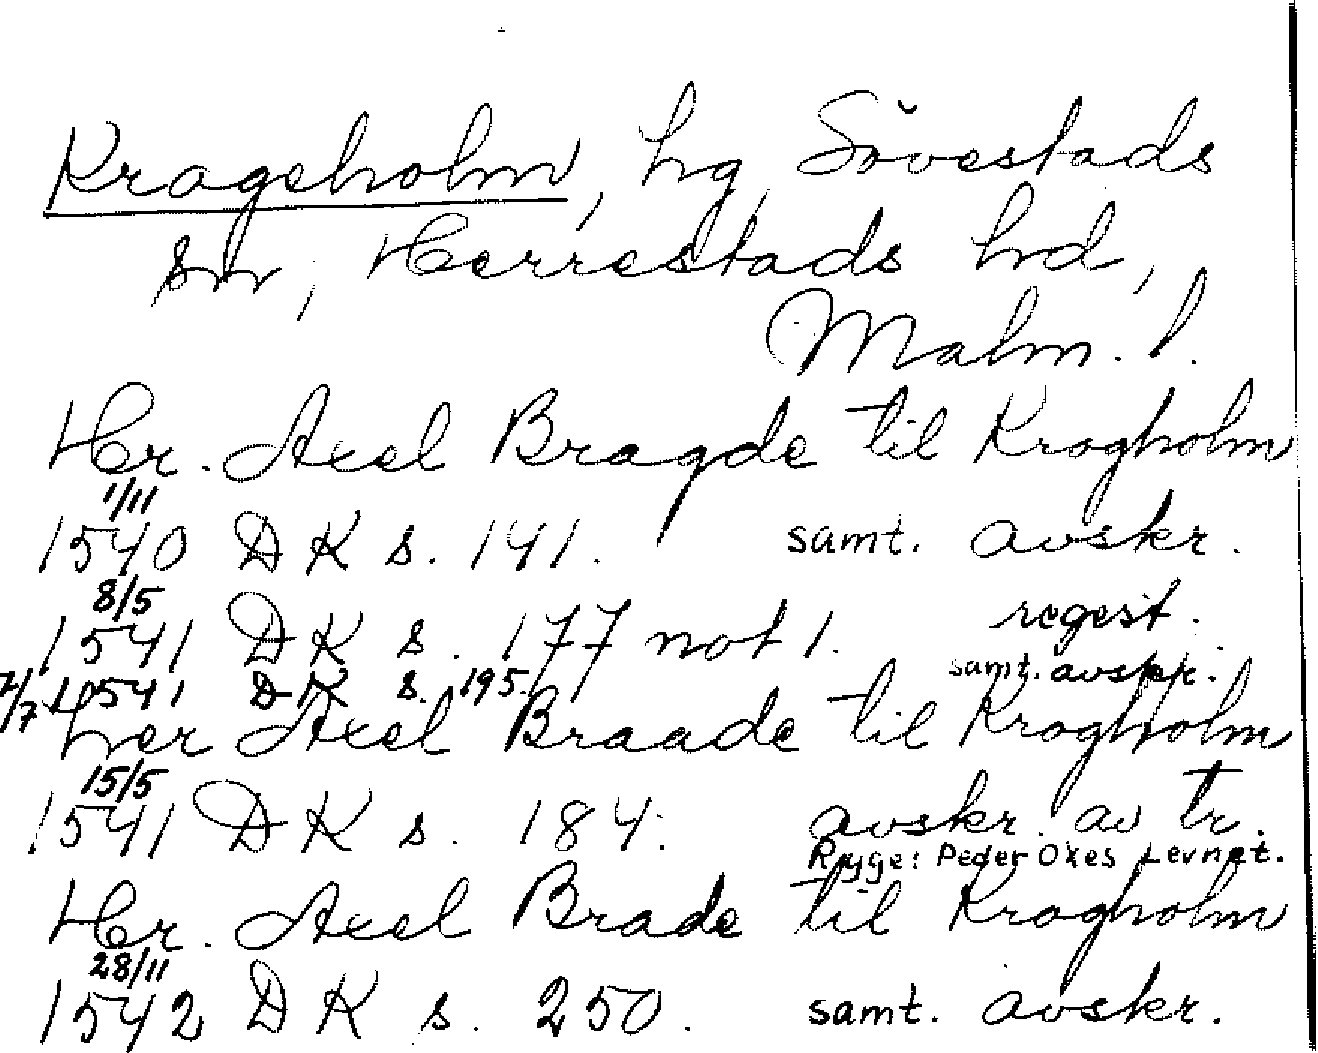 Krageholm, hg, Sövestads
sn, Herrestads hd,
Malm. l.
Hr. Axel Bragde til Kragholm
1/11
1540 DK s. 141. samt. avskr.
8/5
1541 DK s. 177 not 1. regest.
1541 DK s. 195. samt. avskr.
her Axel Braade til Kragholm
15/5
1541 DK s. 184. avskr. av tr.
Rygge: Peder Oxes Levnet.
Hr. Axel Brade til Kragholm
28/11
1542 DK s. 250. samt. avskr.